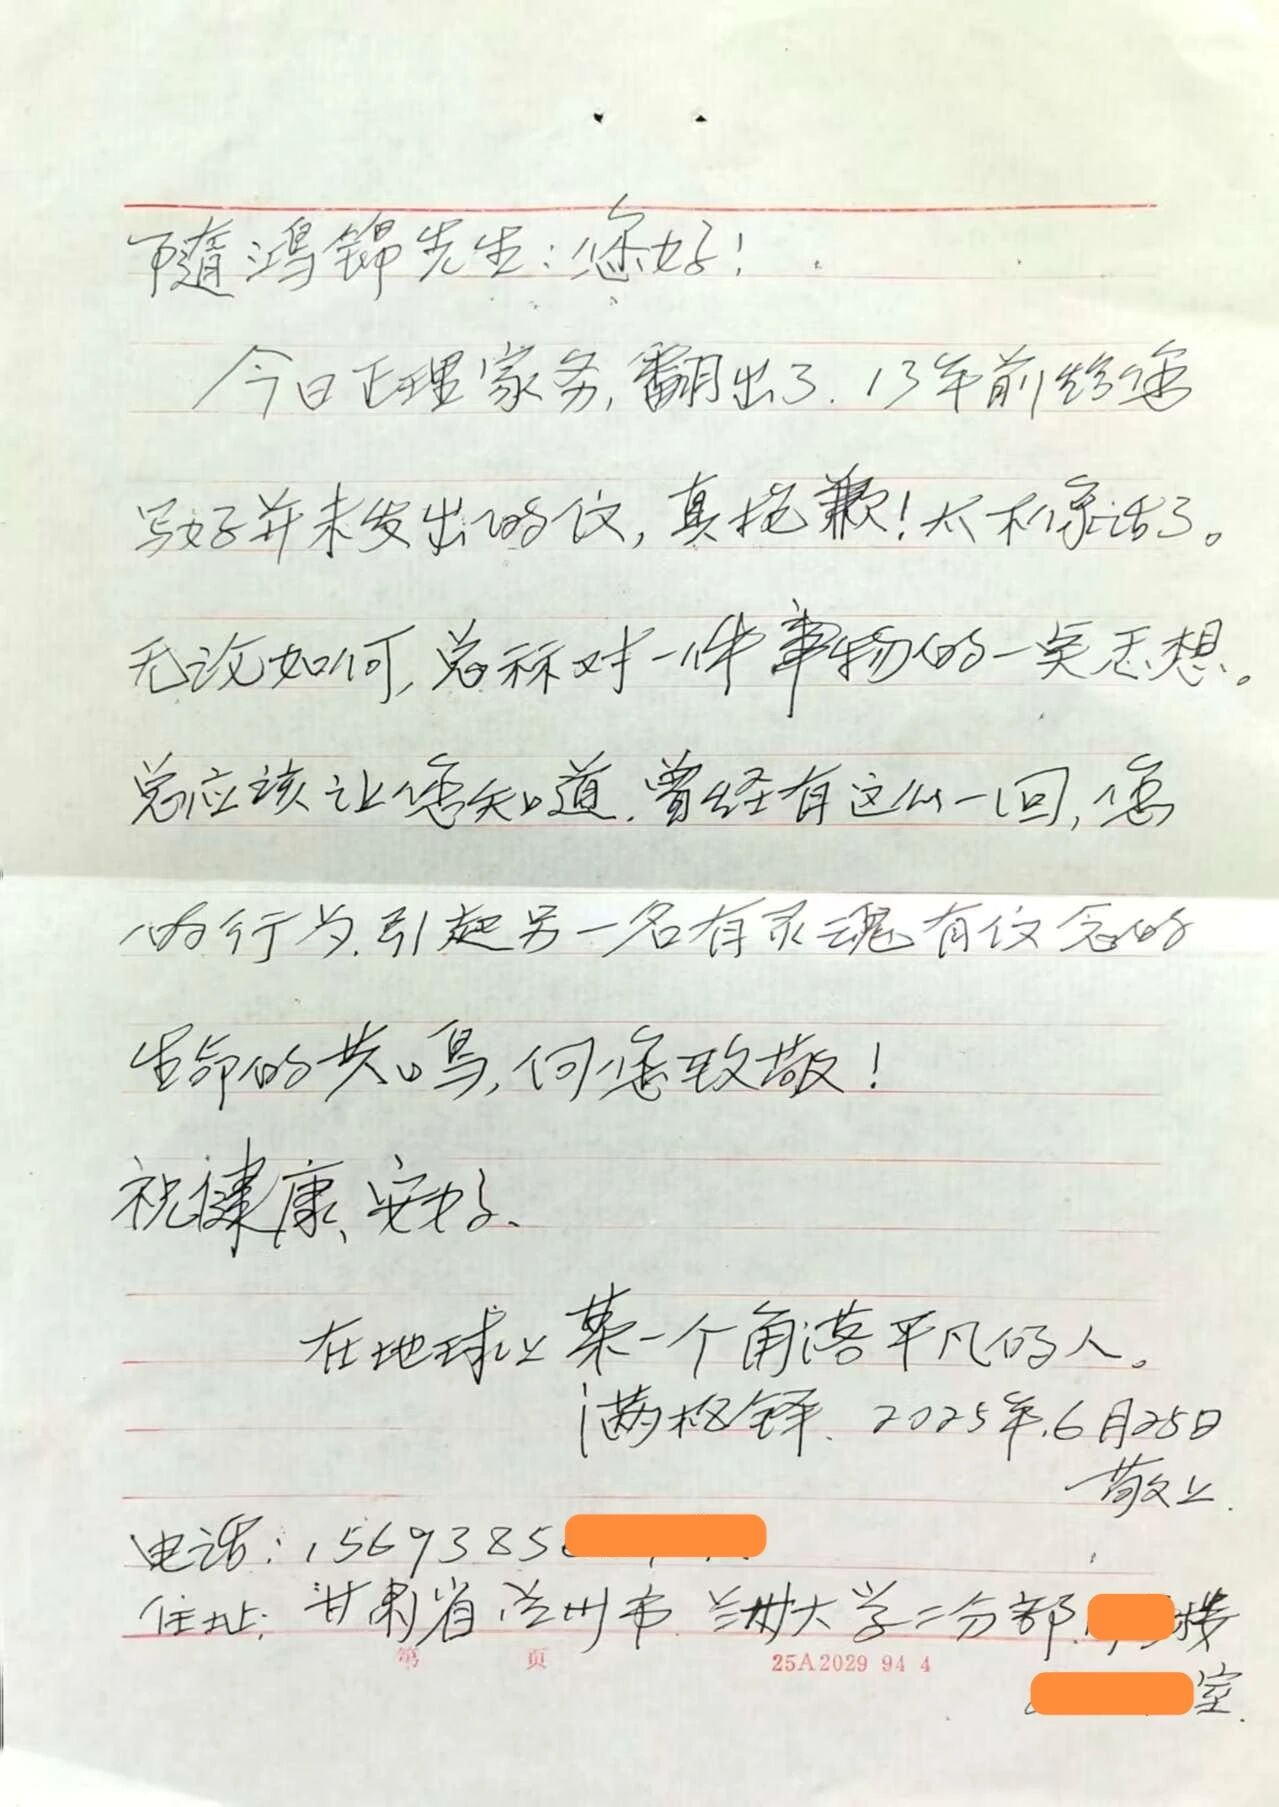 隋鸿锦先生：您好！
今日正理家务，翻出了.13年前给您
写好并未发出的信，真抱歉！太不像话了。
无论如何，总称对一件事物的一类思想。
总应该让您知道.曾经有这么一回，您
的行为.引起另一名有灵魂有信念的
生命的共鸣，向您致敬！
祝健康、安好、
在地球上某一个角落平凡的人。
满格铎. 2025年.6月25日
敬上.
电话：15693858
住址：甘肃省兰州市 兰州大学二分部. 楼
室.
第 页 25A2029 94 4